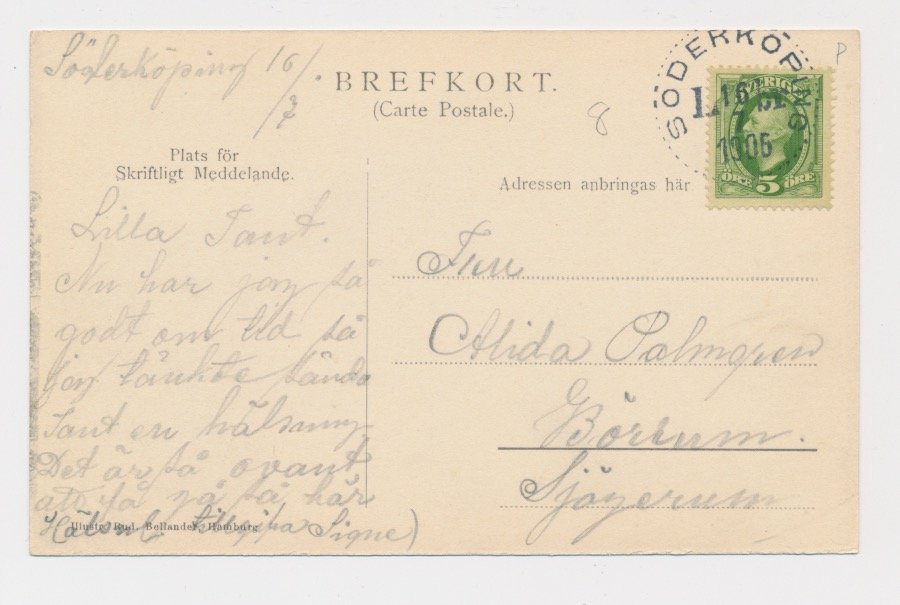 Söderköping 16/7
BREFKORT.
(Carte Postale.)
8
P
SÖDERKÖPING
16
7
1906
SVERIGE
ÖRE 5 ÖRE
Plats för
Skriftligt Meddelande.
Adressen anbringas här
Lilla Tant.
Nu har jag så
godt om tid så
jag tänkte sända
Tant en hälsning
Det är så ovant
att få gå så här
Hälsn.
Signe)
Illustr. Rud. Bellander, Hamburg
Fru
Alida Palmgren
Börrum.
Sjögerum